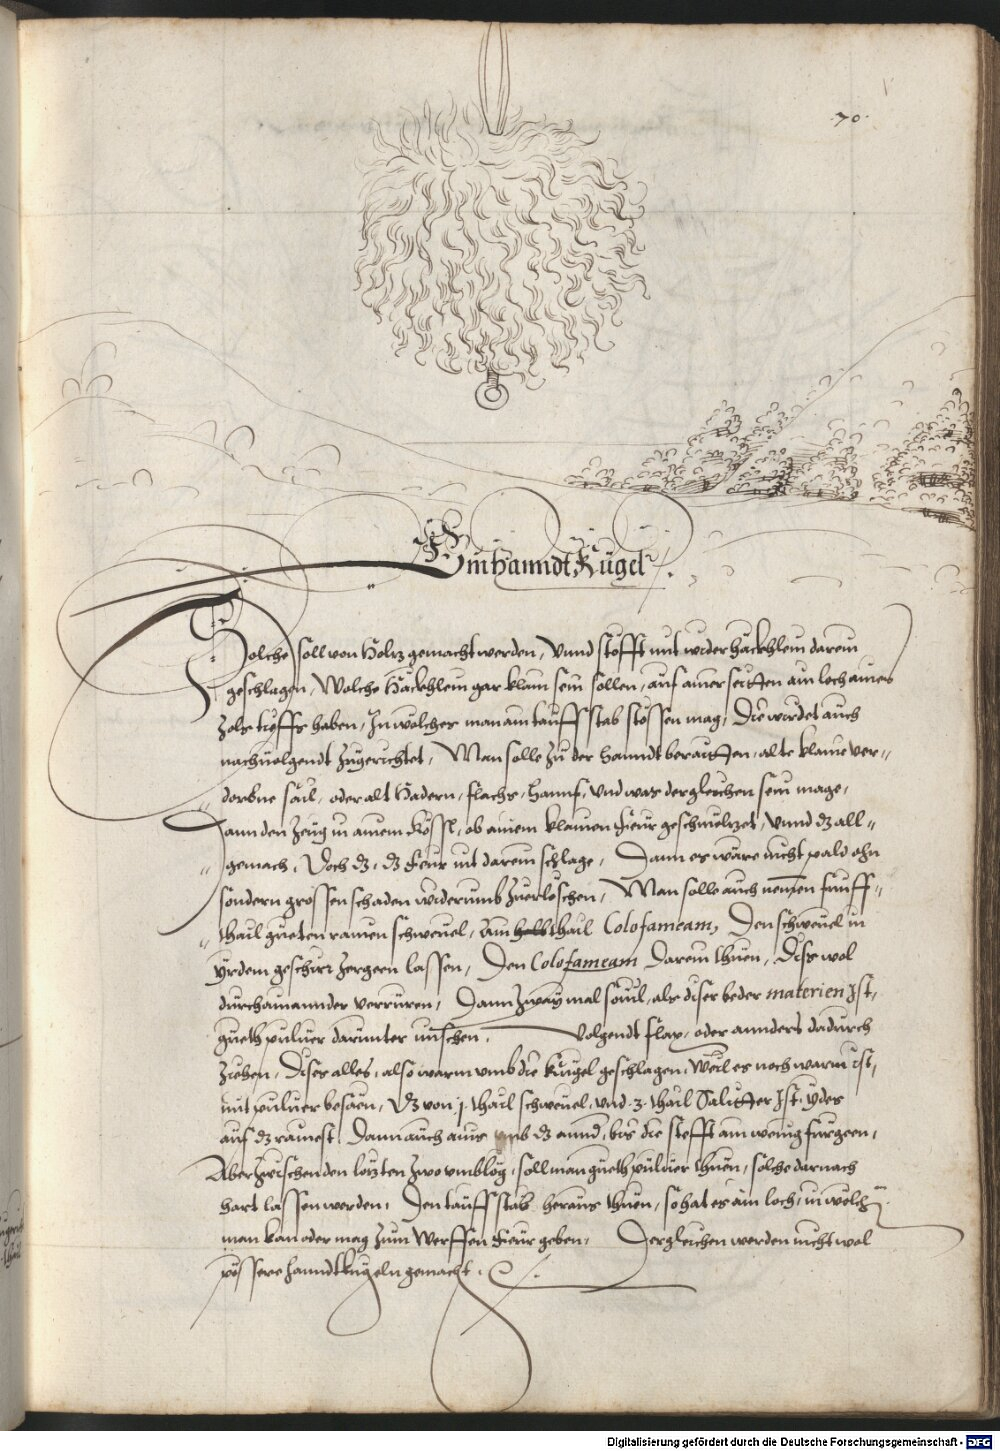 .70.
Ein Hanndt Kugel.
Solche soll von Holtz gemacht werden, Vnnd stöfft mit wider häckhlein darein
geschlagen, Wolche Häckhlein gar klain sein sollen, auf ainer seitten ain loch aines
Zols tieffs haben, In wölches man ain tauff stab stossen mag, Die wirdet auch
nachuolgendt Zuegerichtet, Man solle Zu der Hanndt beraitten, alte klaine ver-
dorbne sail, oder alt Hadern, flachs, Hannf, vnd was dergleichen sein mage,
Dann den Zeug in ainem Kössl, ob ainem klainen Feur geschmeltzet, Vnnd dz all-
gemach, Doch dz, dz Feur nit darein schlage, Dann es wäre nicht pald ohn
sondern grossen schaden widerumb Zuerlöschen, Man solle auch nemen fünff
thail gueten rainen schweuel, Ain thail Colofameam, Den schweuel in
yrdem geschirr Zergeen lassen, Den Colofameam Darein thuen, Diss wol
durchainannder verrüren, Dann Zway mal souil, als diser beder materien Ist,
gueth puluer darunter mischen. Volgendt flax, oder annders dadurch
Ziehen, Dises alles, also warm vmb die Kugel geschlagen, Weil es noch warm ist,
mit puluer besäen, Dz von .j. thail schweuel, vnd .3. thail Saliter Ist, ydes
auf dz rainest, Dann auch ains vmb dz annd, bis die stefft ain wenig fürgeen,
Aber Zwischen den lötzten Zwo vmblög, soll man gueth puluer thuen, solche darnach
hart lassen werden, Den tauff stab heraus thuen, so hat es ain loch, in wölch
man kan oder mag Zum Werffen Feur geben, Dergleichen werden nicht wol
pössere hanndtkugeln gemacht.
Digitalisierung gefördert durch die Deutsche Forschungsgemeinschaft - DFG